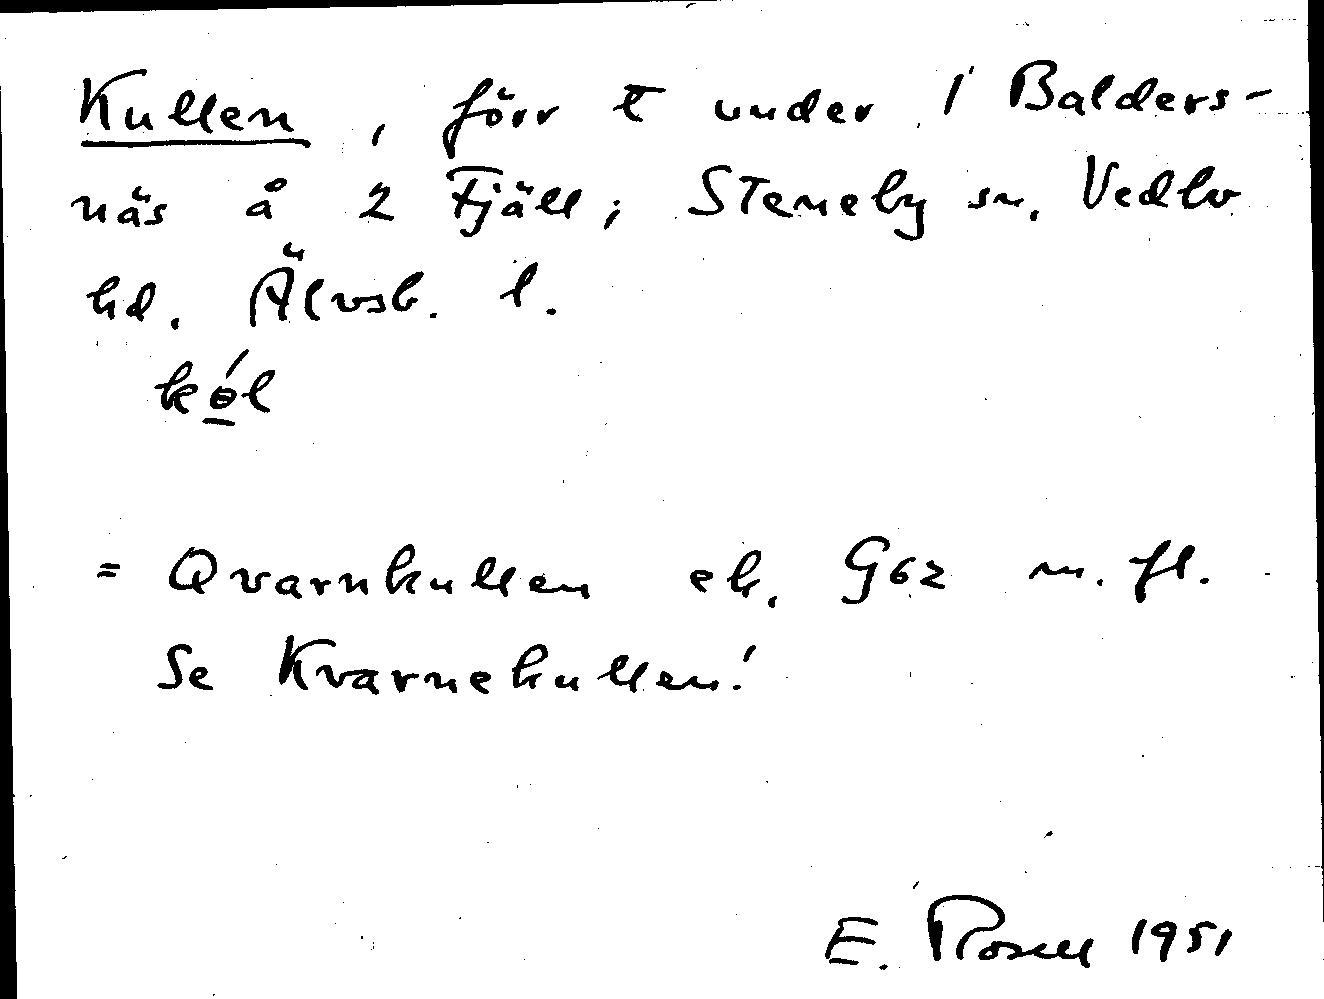 Kullen, förr t under 1 Balders-
näs å 2 Fjäll; Steneby sn. Vedbo
hd. Älvsb. l.
kɵ́l
= Qvarnkullen ek. G62 m. fl.
Se Kvarnekullen!
E. Rosell 1951